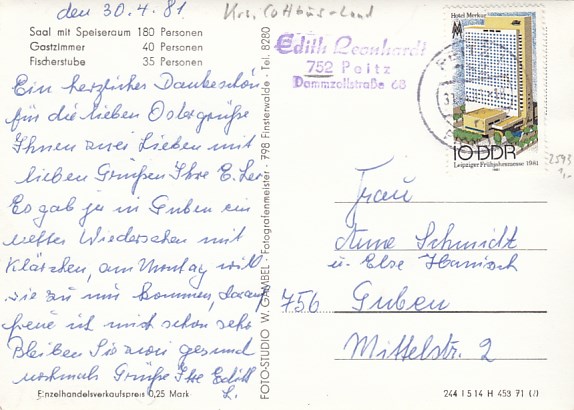 den 30.4.81
Krs. Cottbus-Land
Saal mit Speiseraum 180 Personen
Gastzimmer 40 Personen
Fischerstube 35 Personen
Ein herzliches Dankeschön
für die lieben Ostergrüße
Ihnen zwei Lieben mit
lieben Grüßen Ihre E. Leo
Es gab ja in Guben ein
nettes Wiedersehen mit
Klärchen, am Montag will
sie zu mir kommen, darauf
freue ich mich schon sehr
Bleiben Sie zwei gesund
nochmals Grüße Ihre Edith
L.
Einzelhandelsverkaufspreis 0,25 Mark
FOTO-STUDIO W. GAMBEL · Fotografenmeister · 798 Finsterwalde · Tel. 8280
Edith Leonhardt
752 Peitz
Dammzollstraße 68
Hotel Merkur
MM
10 DDR
Leipziger Frühjahrsmesse 1981
2593
1,-
Frau
Anne Schmidt
u. Else Hanisch
756 Guben
Mittelstr. 2
244 I 5 14 H 453 71 (/)